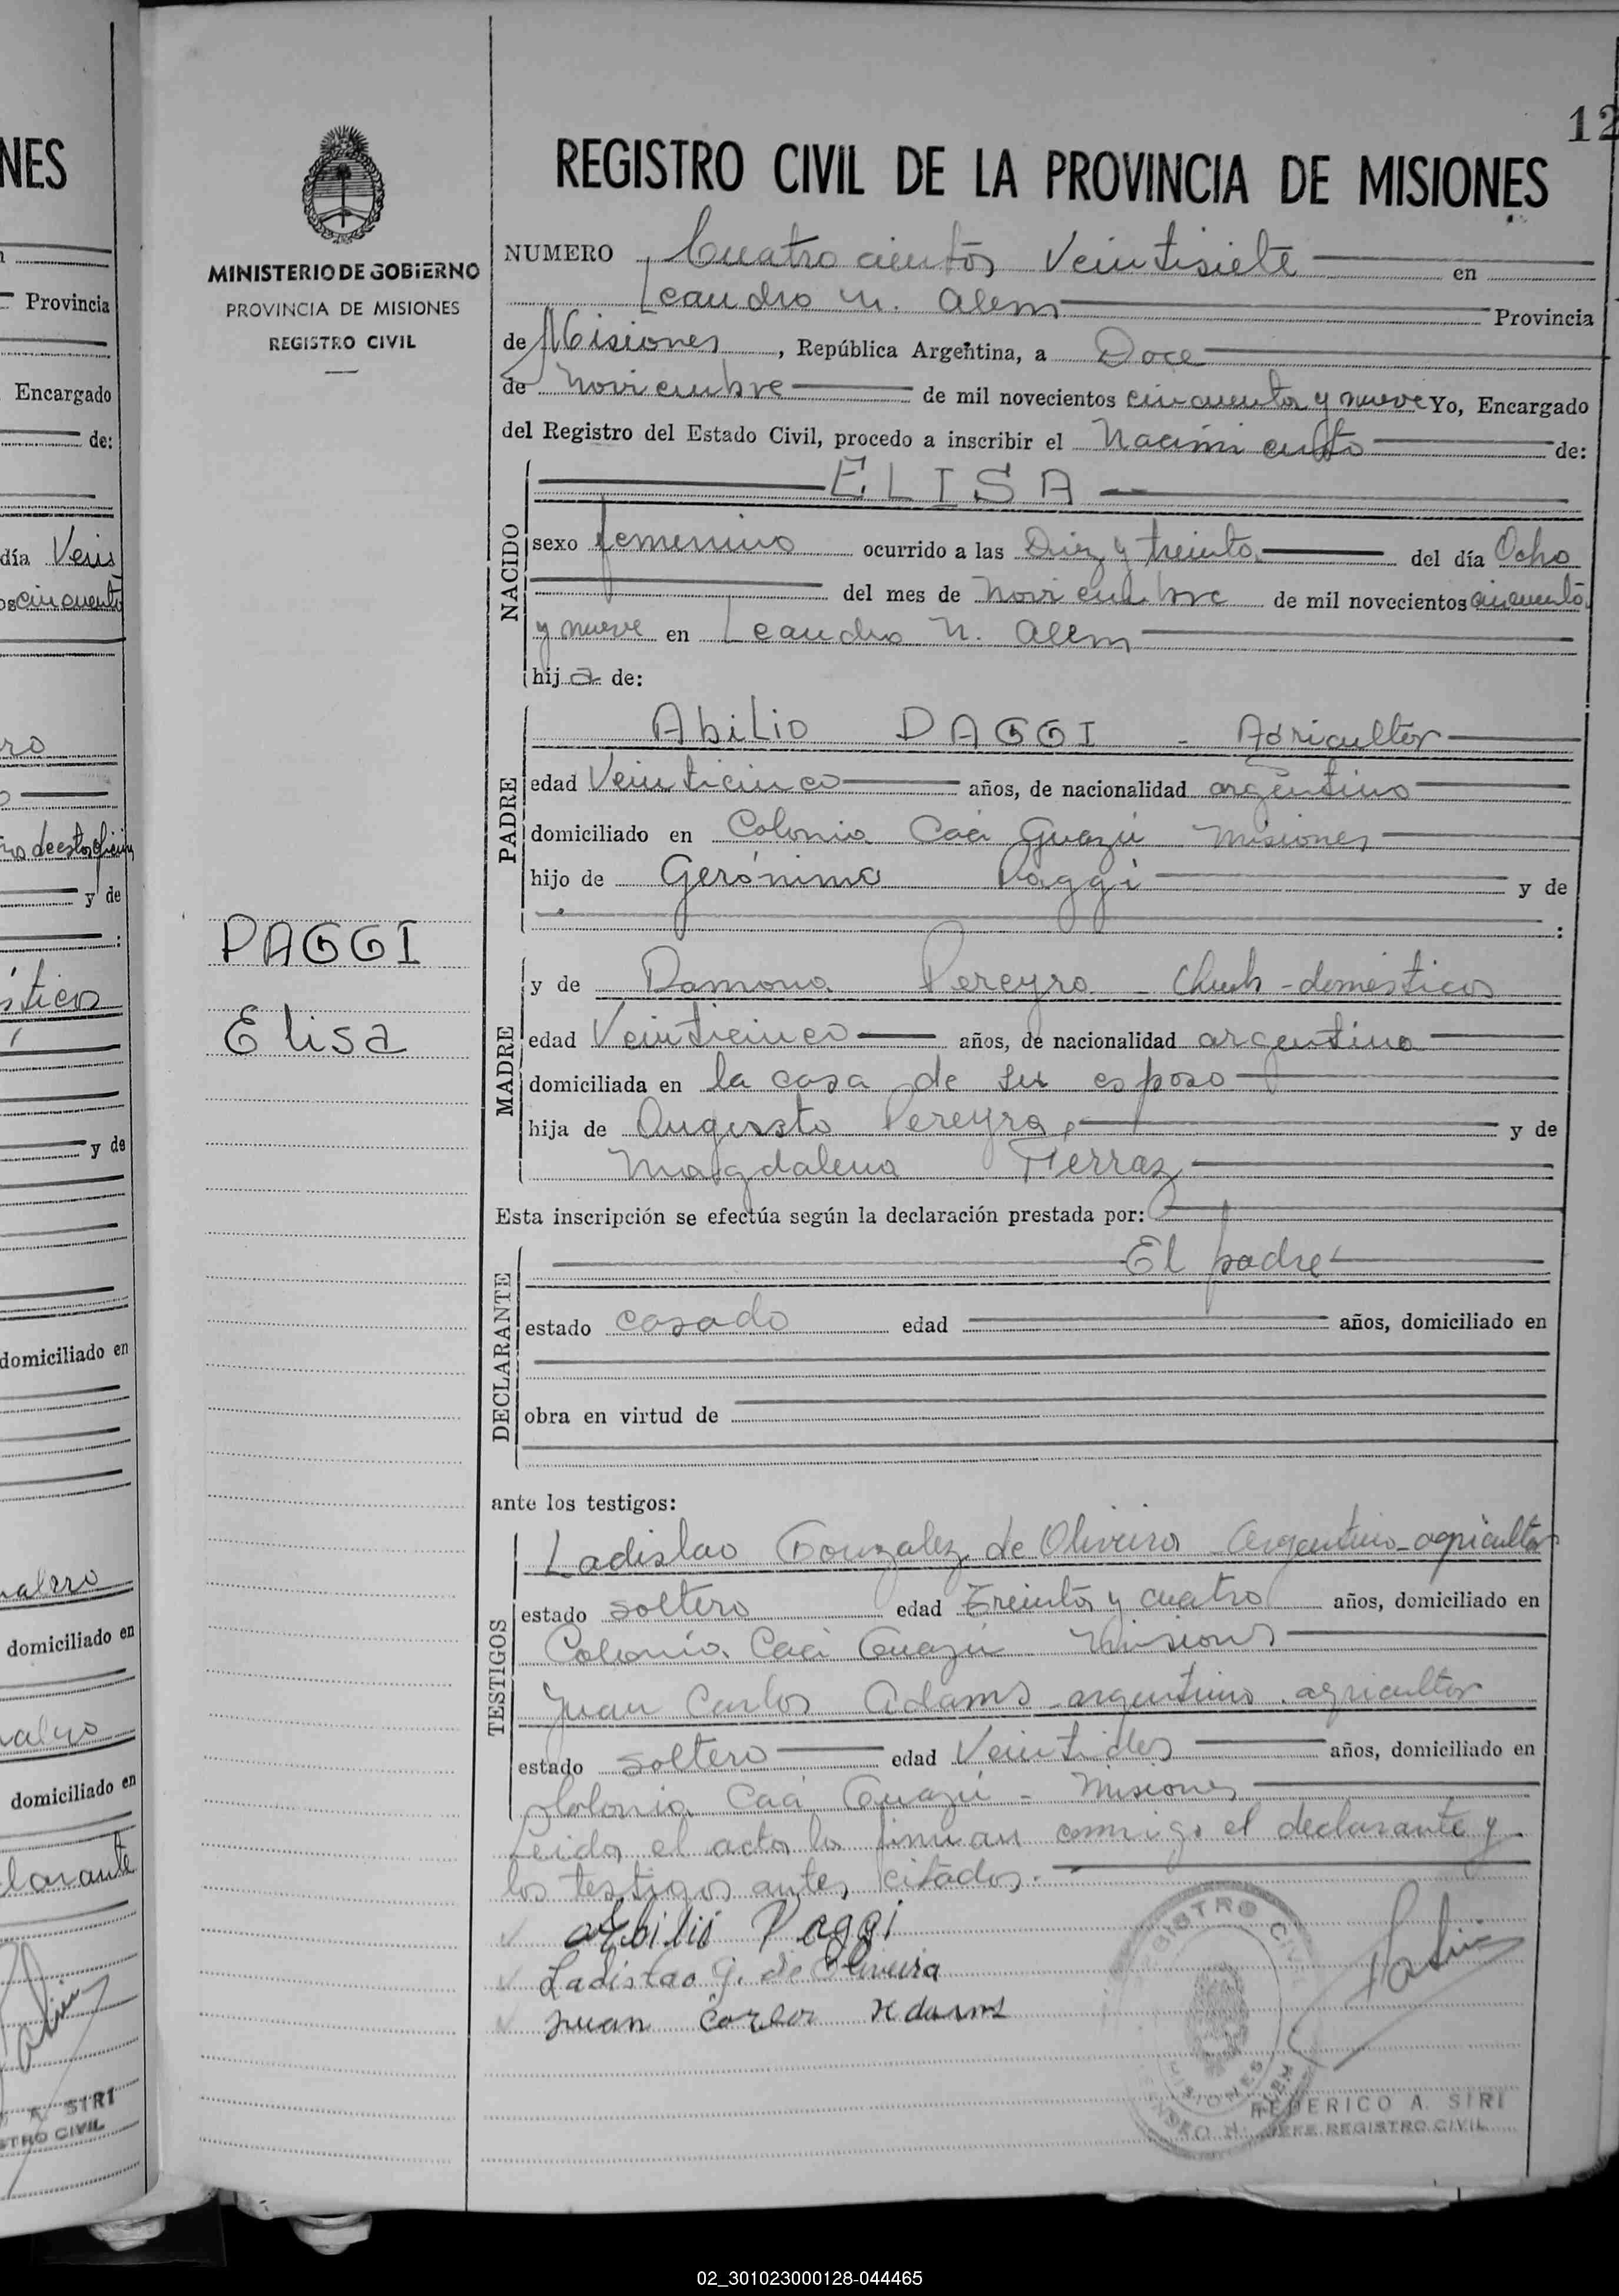 12
REGISTRO CIVIL DE LA PROVINCIA DE MISIONES
MINISTERIO DE GOBIERNO
PROVINCIA DE MISIONES
REGISTRO CIVIL
NUMERO Cuatrocientos Veintisiete en
Leandro N. Alem Provincia
de Misiones, República Argentina, a Doce
de noviembre de mil novecientos cincuenta y nueve Yo, Encargado
del Registro del Estado Civil, procedo a inscribir el Nacimiento de:
NACIDO
ELISA
sexo femenino ocurrido a las Diez y treinta del día Ocho
del mes de noviembre de mil novecientos cincuenta
y nueve en Leandro N. Alem
hija de:
PADRE
Abilio DAGGI - Agricultor
edad Veinticinco años, de nacionalidad argentino
domiciliado en Colonia Caá Guazú Misiones
hijo de Gerónimo Daggi y de
:
PAGGI
Elisa
MADRE
y de Ramona Pereyra - domésticos
edad Veinticinco años, de nacionalidad argentina
domiciliada en la casa de su esposo
hija de Augusto Pereyra, y de
Magdalena Ferraz
Esta inscripción se efectúa según la declaración prestada por:
DECLARANTE
El padre
estado casado edad años, domiciliado en
obra en virtud de
ante los testigos:
TESTIGOS
Ladislao Gonzalez de Oliveira Argentino - agricultor
estado soltero edad Treinta y cuatro años, domiciliado en
Colonia Caá Guazú Misiones
Juan Carlos Adams - argentino - agricultor
estado soltero edad Veintidos años, domiciliado en
Colonia Caá Guazú - Misiones
Leida el acta la firman conmigo el declarante y
los testigos antes citados.
Abilio Paggi
Ladislao G. de Oliveira
Juan Carlos Adams
REGISTRO CIVIL
MISIONES
LEANDRO N. ALEM
FEDERICO A. SIRI
JEFE REGISTRO CIVIL
02_301023000128-044465